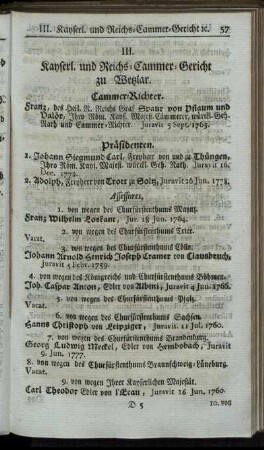 III. Kayserl. und Reichs-Cammer-Gericht ꝛc. 57
III.
Kayserl. und Reichs-Cammer-Gericht
zu Wetzlar.
Cammer-Richter.
Franz, des Heil. R. Reichs Graf Spaur von Pflaum und
Valör, Ihro Röm. Kays. Majest. Cämmerer, würkl. Geh.
Rath und Cammer-Richter. Juravit 5 Sept. 1763.
Präsidenten.
1. Johann Siegmund Carl, Freyherr von und zu Thüngen,
Ihro Röm. Kays. Majest. würkl. Geh. Rath. Juravit 16.
Dec. 1772.
2. Adolph, Freyherr von Trott zu Solz, Juravit 26 Jun. 1778.
Assessores,
1. von wegen des Churfürstenthums Maynz.
Franz Wilhelm Loskant, Jur. 18 Jun. 1764.
2. von wegen des Churfürstenthums Trier.
Vacat.
3. von wegen des Churfürstenthums Cöln.
Johann Arnold Henrich Joseph Cramer von Clausbruch,
Juravit 4 Febr. 1759.
4. von wegen des Königreichs und Churfürstenthums Böhmen.
Joh. Caspar Anton, Edler von Albini, Juravit 4 Jun. 1766.
5. von wegen des Churfürstenthums Pfalz.
Vacat.
6. von wegen des Churfürstenthums Sachsen.
Hanns Christoph von Leipziger, Juravit 11 Jul. 1760.
7. von wegen des Churfürstenthums Brandenburg.
Georg Ludwig Meckel, Edler von Hembsbach, Juravit
9. Jun. 1777.
8. von wegen des Churfürstenthums Braunschweig-Lüneburg.
Vacat.
9. von wegen Ihrer Kayserlichen Majestät.
Carl Theodor Edler von l'Eeau, Juravit 16 Jun. 1760.
D 5 10. von